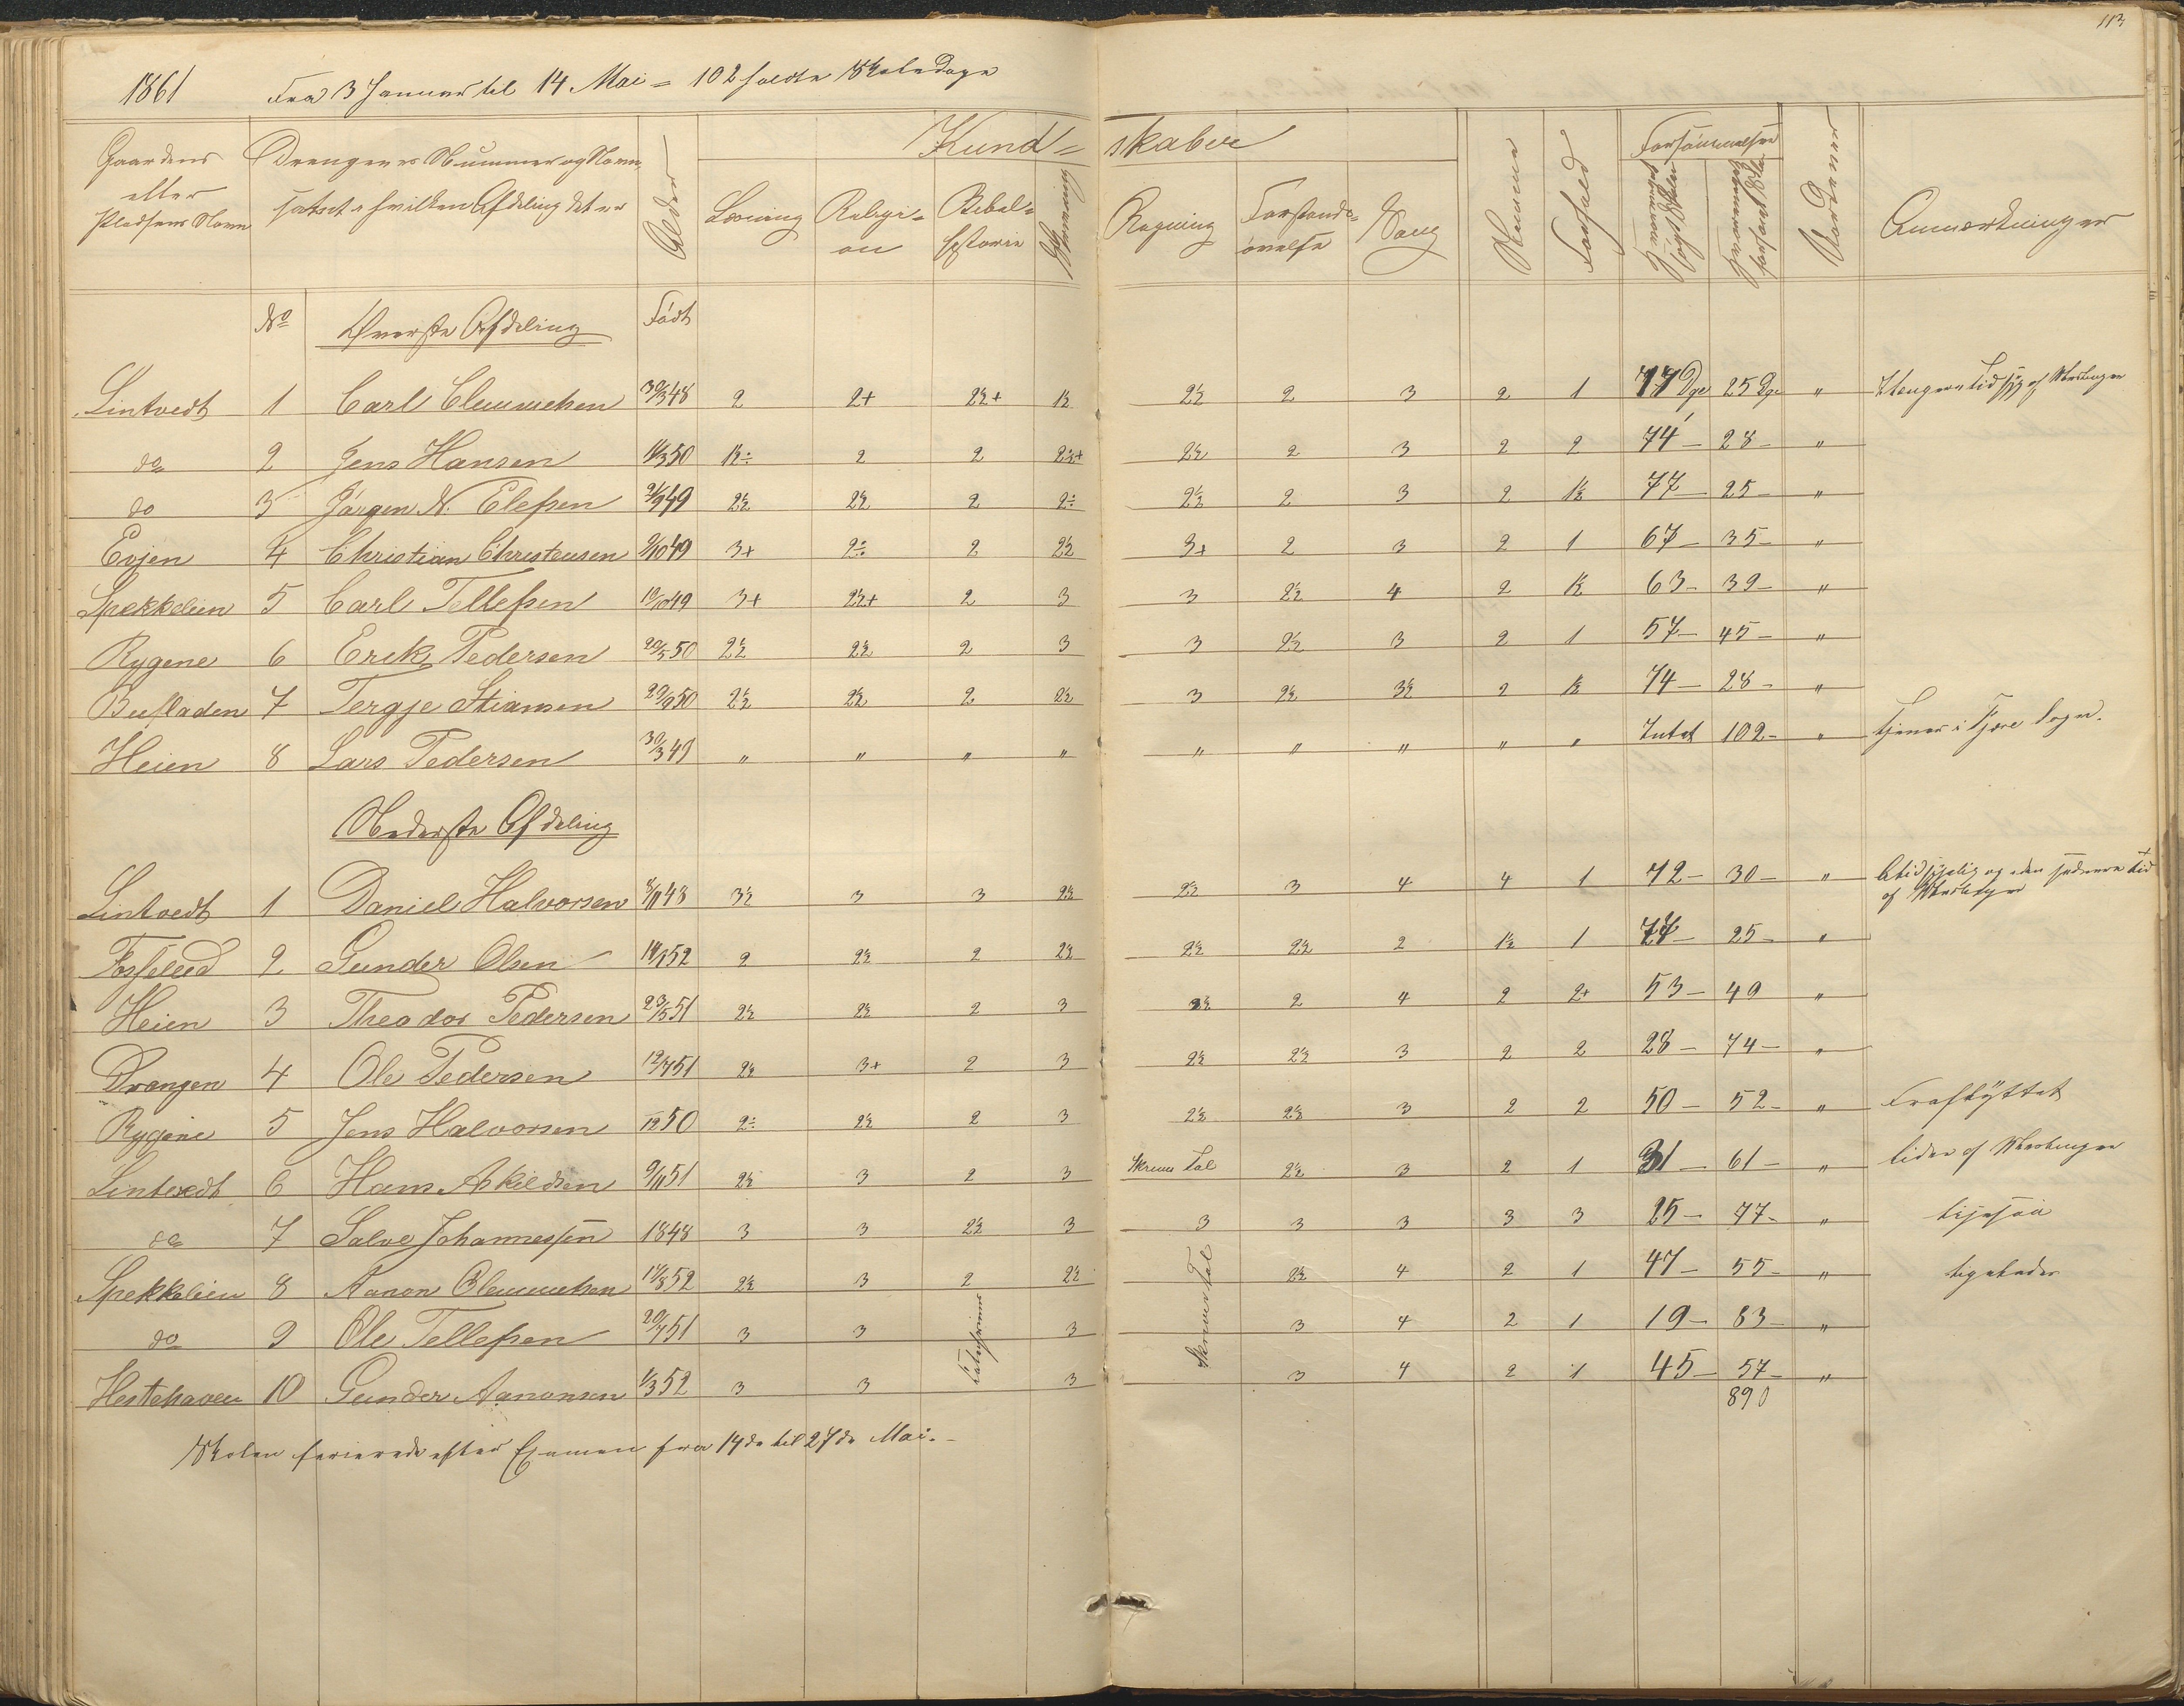 113
1861 Fra 3 Januar til 14 Mai = 102 holdte Skoledage
Gaardens eller Pladsens Navn
Drengenes Nummer og Navn, samt i hvilken Afdeling det er
Alder
Kund= skaber
Læsning
Religi= on
Bibel= historie
Skrivning
Regning
Forstands= øvelse
Sang
Nemme
Forhold
Forsømmelser
Vaxineret
Anmærkninger
No Øverste Afdeling Født
Lintvedt 1 Carl Clemmetsen 30/3 48 2 2+ 2½+ 1½ 2½ 2 3 2 1 77 Dge 25 Dge "
do 2 Jens Hansen 14/3 50 1½÷ 2 2 2½+ 2½ 2 3 2 2 74 – 28 – "
do 3 Jørgen N. Elefsen 21/9 49 2½ 2½ 2 2÷ 2½ 2 3 2 1½ 77 – 25 – "
Evjen 4 Christian Christensen 9/10 49 3+ 2÷ 2 2½ 3+ 2 3 2 1 67 – 35 – "
Spekkelien 5 Carl Tellefsen 19/10 49 3+ 2½+ 2 3 3 2½ 4 2 1½ 63 – 39 – "
Rygene 6 Erik Pedersen 20/5 50 2½ 2½ 2 3 3 2½ 3 2 1 57 – 45 – "
Bufladen 7 Tergje Stiansen 29/9 50 2½ 2½ 2 2½ 3 2½ 3½ 2 1½ 74 – 28 – "
Heien 8 Lars Pedersen 30/3 49 " " " " " " " " " Intet 102 – " tjener i Fjære Sogn.
Nederste Afdeling
Lintvedt 1 Daniel Halvorsen 8/11 48 3½ 3 3 2½ 2½ 3 4 4 1 72 – 30 – "
Fosselied 2 Gunder Olsen 14/1 52 2 2½ 2 2½ 2½ 2½ 2 1½ 1 77 – 25 – "
Heien 3 Theodor Pedersen 23/5 51 2½ 2½ 2 3 2½ 2 4 2 2+ 53 – 49 "
Drangen 4 Ole Pedersen 12/4 51 2½ 3+ 2 3 2½ 2½ 3 2 2 28 – 74 – "
Rygene 5 Jens Halvorsen 50 2÷ 2½ 2 3 2½ 2½ 3 2 2 50 – 52 – " Fraflyttet
Lintvedt 6 Hans Askildsen 9/11 51 2½ 3 2 3 Skriver Tal 2½ 3 2 1 31 – 61 – "
do 7 Salve Johannessen 1848 3 3 2½ 3 3 3 3 3 3 25 – 77 – " ligesaa
Spekkelien 8 Aanon Clemmetsen 17/8 52 2½ 3 2 2½ Skriver Tal 2½ 4 2 1 47 – 55 – " ligeledes
do 9 Ole Tellefsen 20/7 51 3 3 3 3 4 2 1 19 – 83 – "
Hestehaven 10 Gunder Aanonsen 1/3 52 3 3 3 3 4 2 1 45 – 57 – "
890
Skolen ferierede efter Examen fra 14de til 27de Mai. –